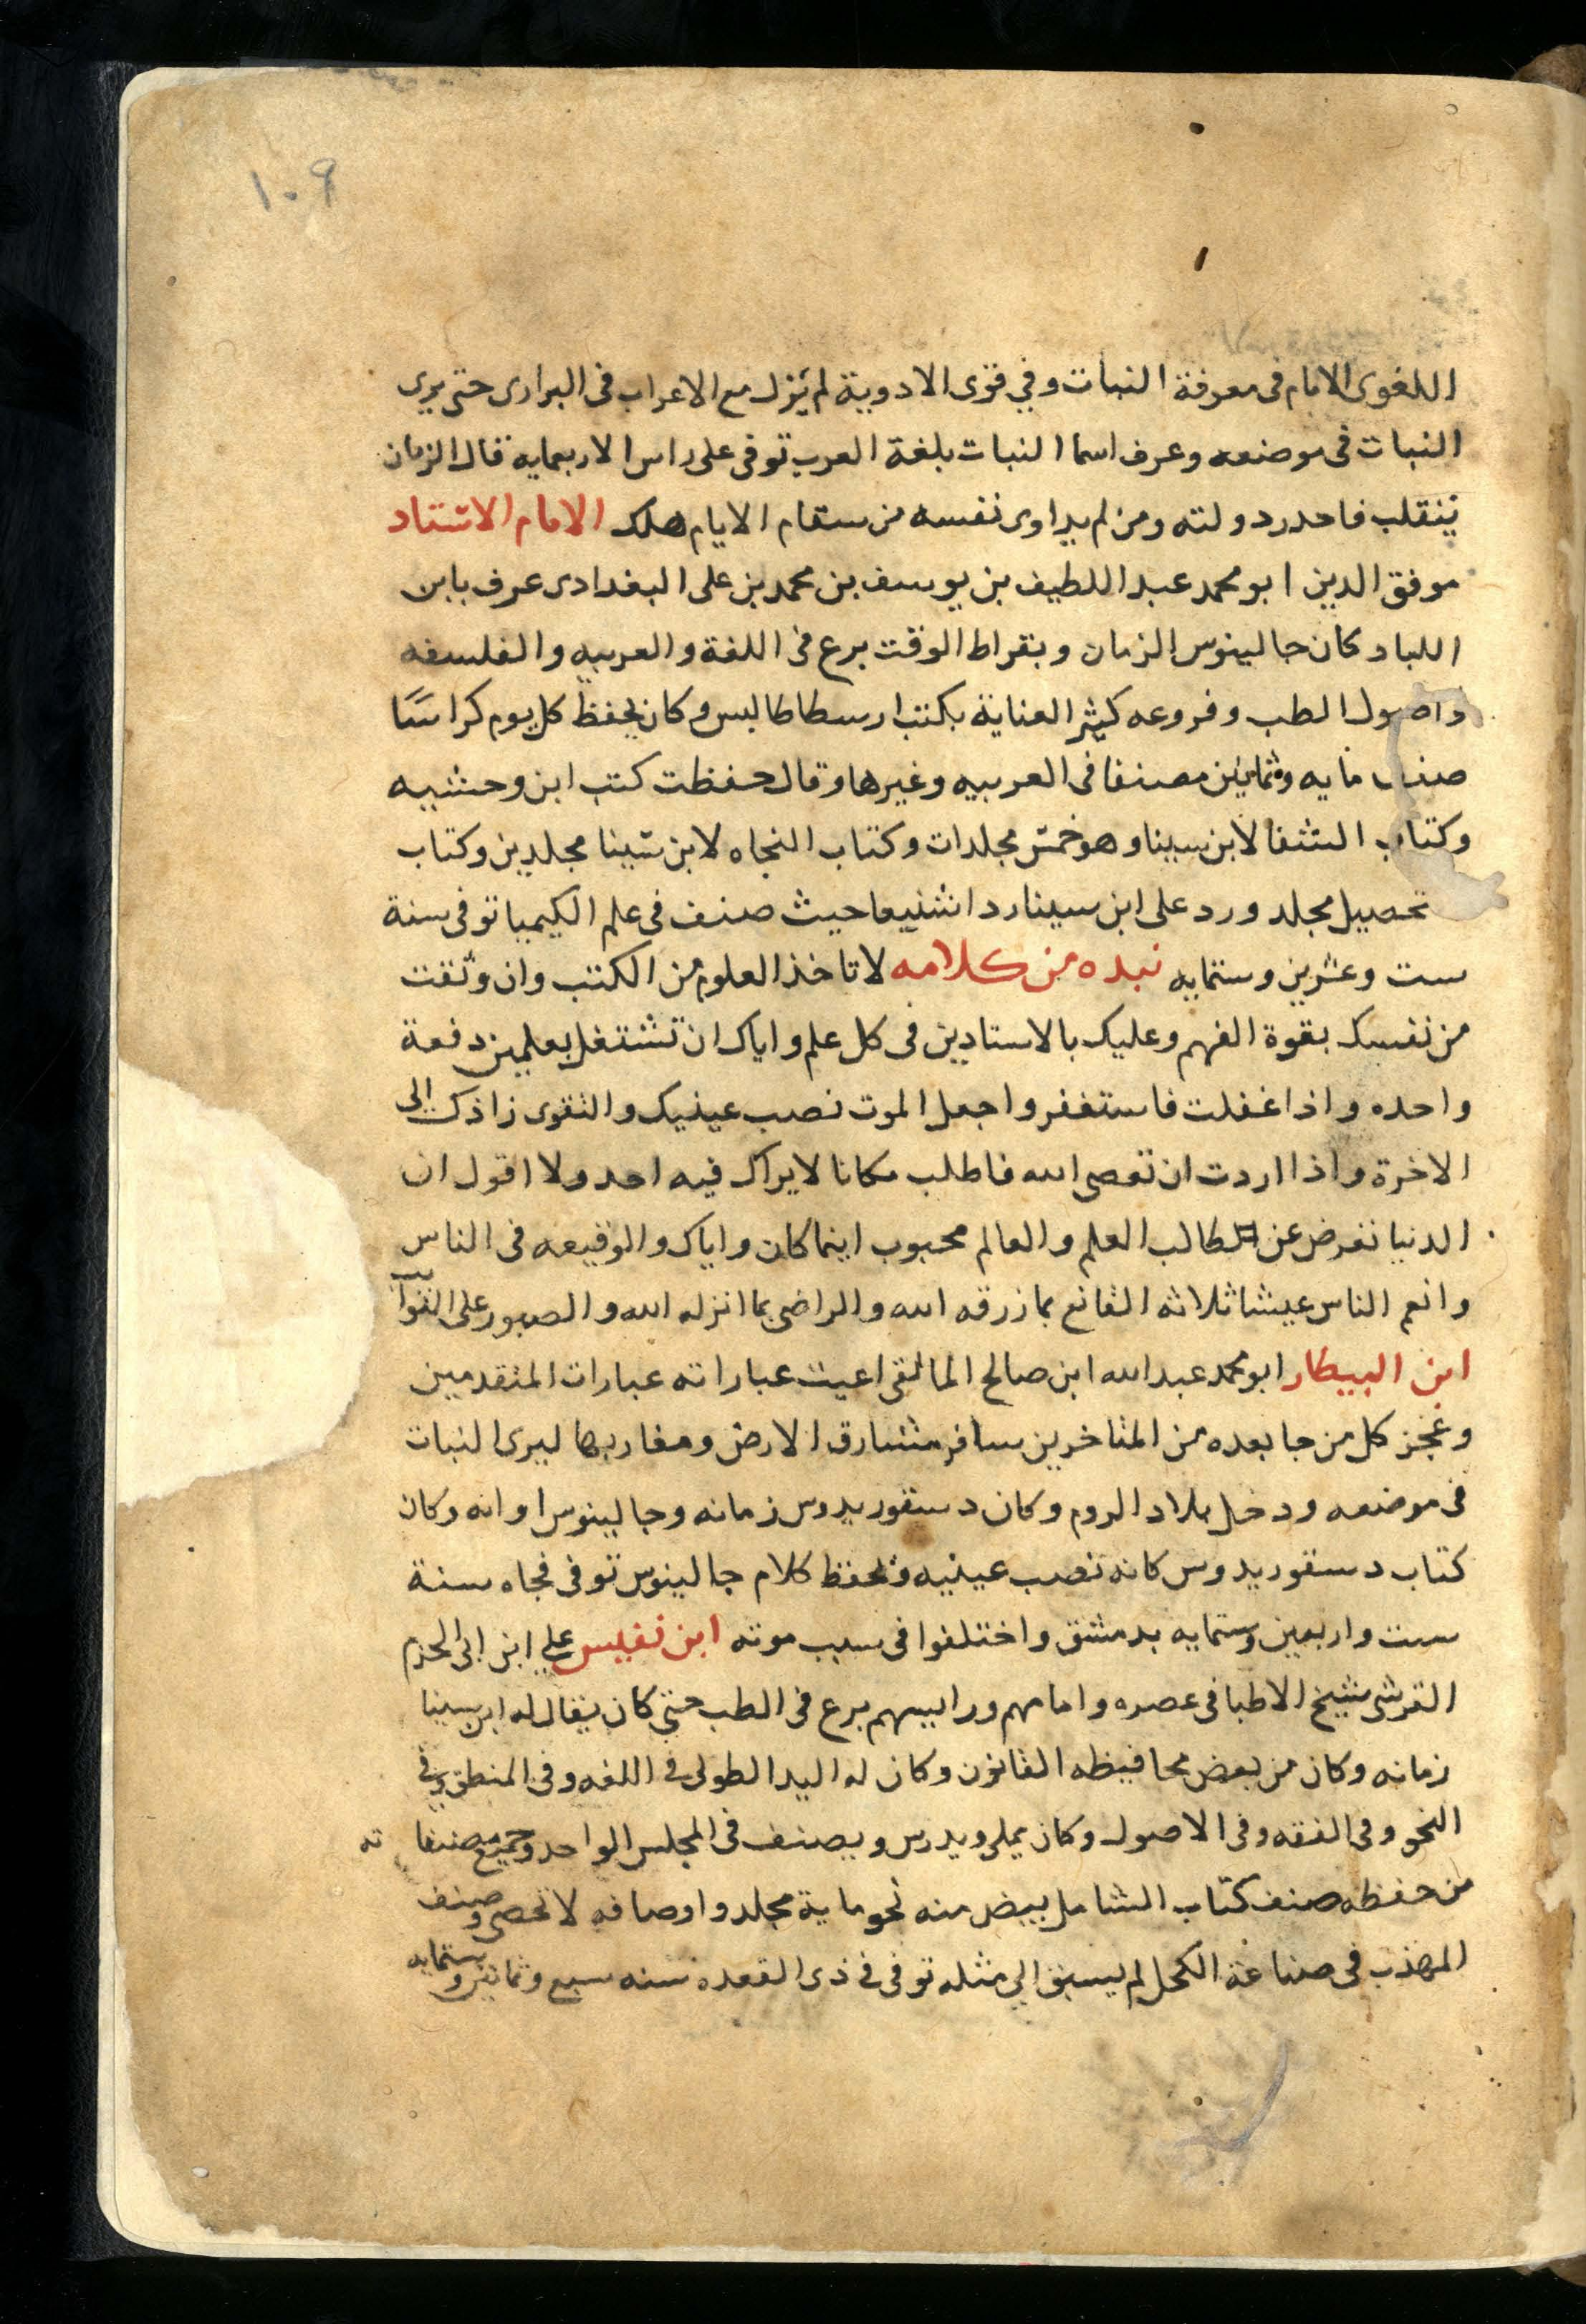 ١٠٩
اللغوى الامام فى معرفة النبات وفي قوى الادوية لم يزل مع الاعراب فى البرارى حتى يرى
النبات فى موضعه وعرف اسما النبات بلغة العرب توفى على راس الاربعمايه قال الزمان
ينقلب فاحدر دولته ومن لم يداوى نفسه من سقام الايام هلك الامام الاستاد
موفق الدين ابو محمد عبد اللطيف بن يوسف بن محمد بن على البغدادى عرف بابن
اللباد كان جالينوس الزمان وبقراط الوقت برع فى اللغة والعربيه والفلسفه
واصول الطب وفروعه كثير العناية بكتب ارسطاطاليس وكان يحفظ كل يوم كراسا
صنف مايه وثمانين مصنفا فى العربيه وغيرها وقال حفظت كتب ابن وحشيه
وكتاب الشفا لابن سينا وهو خمس مجلدات وكتاب النجاه لابن سينا مجلدين وكتاب
تحصيل مجلد ورد على ابن سينا ردا شنيعا حيث صنف فى علم الكيميا توفى سنة
ست وعشرين وستمايه نبده من كلامه لا تاخذ العلوم من الكتب وان وثقت
من نفسك بقوة الفهم وعليك بالاستادين فى كل علم واياك ان تشتغل بعلمين دفعة
واحده واذا غفلت فاستغفر واجعل الموت نصب عينيك والتقوى زادك الى
الاخرة واذا اردت ان تعصى الله فاطلب مكانا لا يراك فيه احد ولا اقول ان
الدنيا تعرض عن طالب العلم والعالم محبوب اينما كان واياك والوقيعه فى الناس
وانعم الناس عيشا ثلاثه القانع بما رزقه الله والراضى بما انزله الله والصبور على
ابن البيطار ابو محمد عبد الله ابن صالح المالقى اعيت عباراته عبارات المتقدمين
وعجز كل من جا بعده من المتاخرين سافر مشارق الارض ومغاربها ليرى النبات
فى موضعه ودخل بلاد الروم وكان دسقوريدوس زمانه وجالينوس اوانه وكان
كتاب دسقوريدوس كانه نصب عينيه وحفظ كلام جالينوس توفى فجاه سنة
ست واربعين وستمايه بدمشق واختلفوا فى سبب موته ابن نفيس على ابن ابى الحزم
القرشى شيخ الاطبا فى عصره وامامهم وراييسهم برع فى الطب حتى كان يقال له ابن سينا
زمانه وكان من بعض محافيظه القانون وكان له اليد الطولى فى اللغه وفى المنطق وفى
النحو وفى الفقه وفى الاصول وكان يملى ويدرس ويصنف فى المجلس الواحد وجميع مصنفاته
من حفظه صنف كتاب الشامل بيض منه نحو ماية مجلد واوصافه لا تحصى وصنف
المهذب فى صناعة الكحل لم يسبق الى مثله توفى فى ذى القعده سنه سبع وثمانين وستمايه